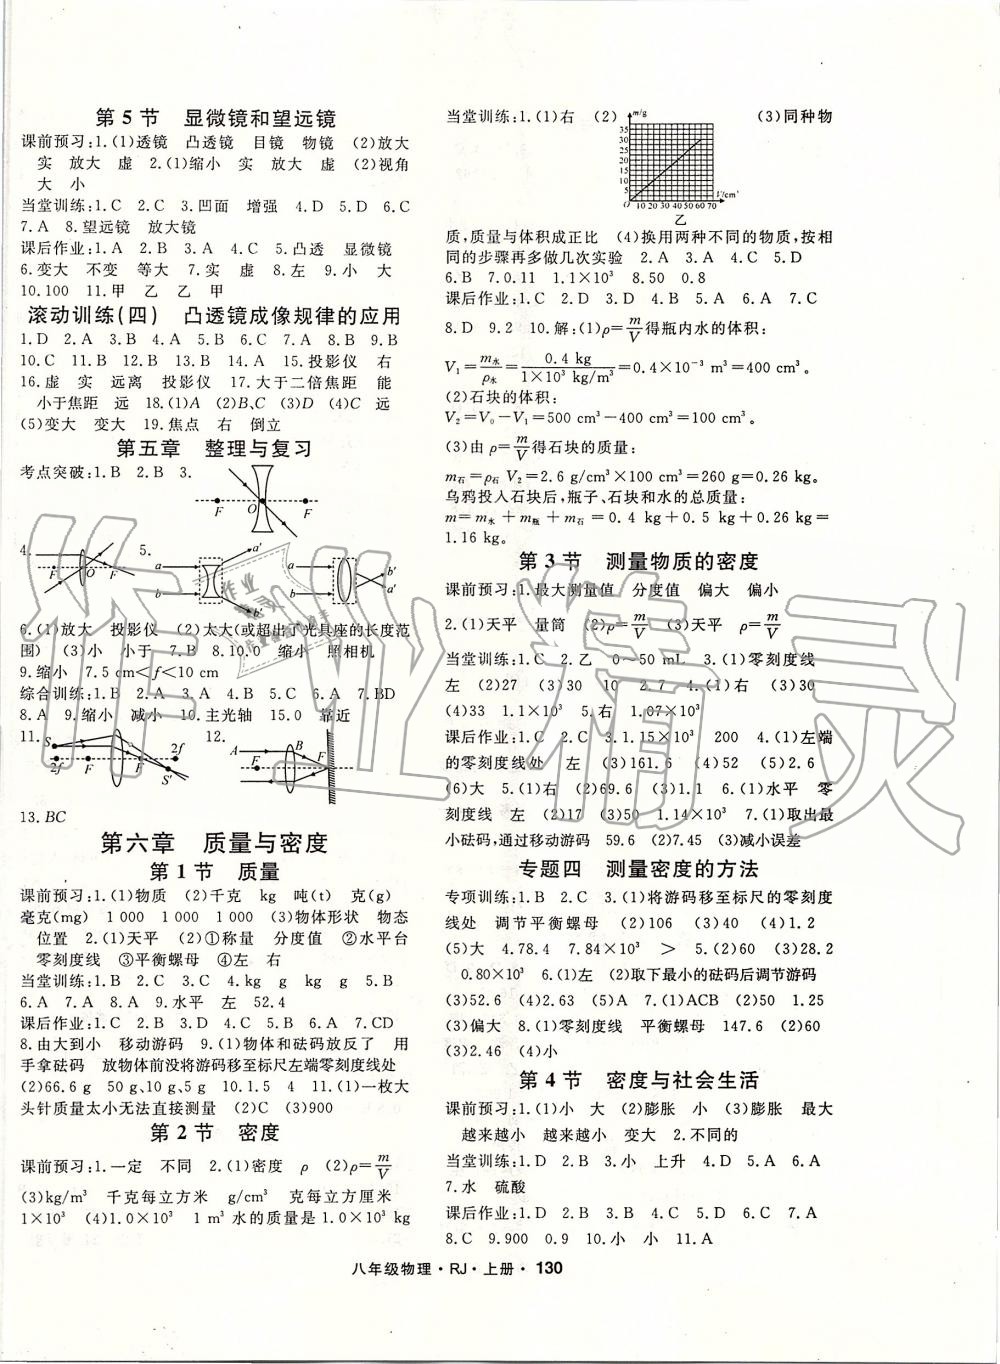 第5节 显微镜和望远镜
课前预习:1.(1)透镜 凸透镜 目镜 物镜 (2)放大
实 放大 虚 2.(1)缩小 实 放大 虚 (2)视角
大 小
当堂训练:1.C 2.C 3.凹面 增强 4.D 5.D 6.C
7.A 8.望远镜 放大镜
课后作业:1.A 2.B 3.A 4.C 5.凸透 显微镜
6.变大 不变 等大 7.实 虚 8.左 9.小 大
10.100 11.甲 乙 乙 甲
滚动训练(四) 凸透镜成像规律的应用
1.D 2.A 3.B 4.A 5.B 6.C 7.A 8.B 9.B
10.C 11.B 12.B 13.B 14.A 15.投影仪 右
16.虚 实 远离 投影仪 17.大于二倍焦距 能
小于焦距 远 18.(1)A (2)B、C (3)D (4)C 远
(5)变大 变大 19.焦点 右 倒立
第五章 整理与复习
考点突破:1.B 2.B 3.
F O F
4. F O F 5. a b a′ b′ a b b′ a′
6.(1)放大 投影仪 (2)太大(或超出了光具座的长度范
围) (3)小 小于 7.B 8.10.0 缩小 照相机
9.缩小 7.5 cm<f<10 cm
综合训练:1.B 2.A 3.A 4.B 5.C 6.A 7.BD
8.A 9.缩小 减小 10.主光轴 15.0 靠近
11. S 2f F F 2f S′ 12. A B F F
13.BC
第六章 质量与密度
第1节 质量
课前预习:1.(1)物质 (2)千克 kg 吨(t) 克(g)
毫克(mg) 1 000 1 000 1 000 (3)物体形状 物态
位置 2.(1)天平 (2)①称量 分度值 ②水平台
零刻度线 ③平衡螺母 ④左 右
当堂训练:1.B 2.C 3.C 4.kg g kg g 5.B
6.A 7.A 8.A 9.水平 左 52.4
课后作业:1.C 2.B 3.D 4.C 5.B 6.A 7.CD
8.由大到小 移动游码 9.(1)物体和砝码放反了 用
手拿砝码 放物体前没将游码移至标尺左端零刻度线处
(2)66.6 g 50 g、10 g、5 g 10.1.5 4 11.(1)一枚大
头针质量太小无法直接测量 (2)C (3)900
第2节 密度
课前预习:1.一定 不同 2.(1)密度 ρ (2)ρ=m/V
(3)kg/m³ 千克每立方米 g/cm³ 克每立方厘米
1×10³ (4)1.0×10³ 1 m³水的质量是1.0×10³ kg
当堂训练:1.(1)右 (2) (3)同种物
m/g
35
30
25
20
15
10
5
O 10 20 30 40 50 60 70 V/cm³
乙
质,质量与体积成正比 (4)换用两种不同的物质,按相
同的步骤再多做几次实验 2.A 3.A 4.C 5.D
6.B 7.0.11 1.1×10³ 8.50 0.8
课后作业:1.C 2.D 3.D 4.C 5.A 6.A 7.C
8.D 9.2 10.解:(1)ρ=m/V得瓶内水的体积:
V₁=m水/ρ水=0.4 kg/1×10³ kg/m³=0.4×10⁻³ m³=400 cm³。
(2)石块的体积:
V₂=V₀-V₁=500 cm³-400 cm³=100 cm³。
(3)由ρ=m/V得石块的质量:
m石=ρ石 V₂=2.6 g/cm³×100 cm³=260 g=0.26 kg。
乌鸦投入石块后,瓶子、石块和水的总质量:
m=m水+m瓶+m石=0.4 kg+0.5 kg+0.26 kg=
1.16 kg。
第3节 测量物质的密度
课前预习:1.最大测量值 分度值 偏大 偏小
2.(1)天平 量筒 (2)ρ=m/V (3)天平 ρ=m/V
当堂训练:1.C 2.乙 0~50 mL 3.(1)零刻度线
左 (2)27 (3)30 10 2.7 4.(1)右 (3)30
(4)33 1.1×10³ 5.右 1.07×10³
课后作业:1.C 2.C 3.1.15×10³ 200 4.(1)左端
的零刻度线处 左 (3)161.6 (4)52 (5)2.6
(6)大 5.(1)右 (2)69.6 (3)1.1 6.(1)水平 零
刻度线 左 (2)17 (3)50 1.14×10³ 7.(1)取出最
小砝码,通过移动游码 59.6 (2)7.45 (3)减小误差
专题四 测量密度的方法
专项训练:1.B 2.C 3.(1)将游码移至标尺的零刻度
线处 调节平衡螺母 (2)106 (3)40 (4)1.2
(5)大 4.78.4 7.84×10³ > 5.(2)60 (3)28.2
0.80×10³ 6.(1)左 (2)取下最小的砝码后调节游码
(3)52.6 (4)2.63 (5)A 7.(1)ACB (2)50 1.25
(3)偏大 8.(1)零刻度线 平衡螺母 147.6 (2)60
(3)2.46 (4)小
第4节 密度与社会生活
课前预习:1.(1)小 大 (2)膨胀 小 (3)膨胀 最大
越来越小 越来越小 变大 2.不同的
当堂训练:1.D 2.B 3.小 上升 4.D 5.A 6.A
7.水 硫酸
课后作业:1.D 2.B 3.B 4.A 5.C 6.B 7.A
8.C 9.900 0.9 10.小 小 11.A
八年级物理·RJ·上册·130
作业精灵